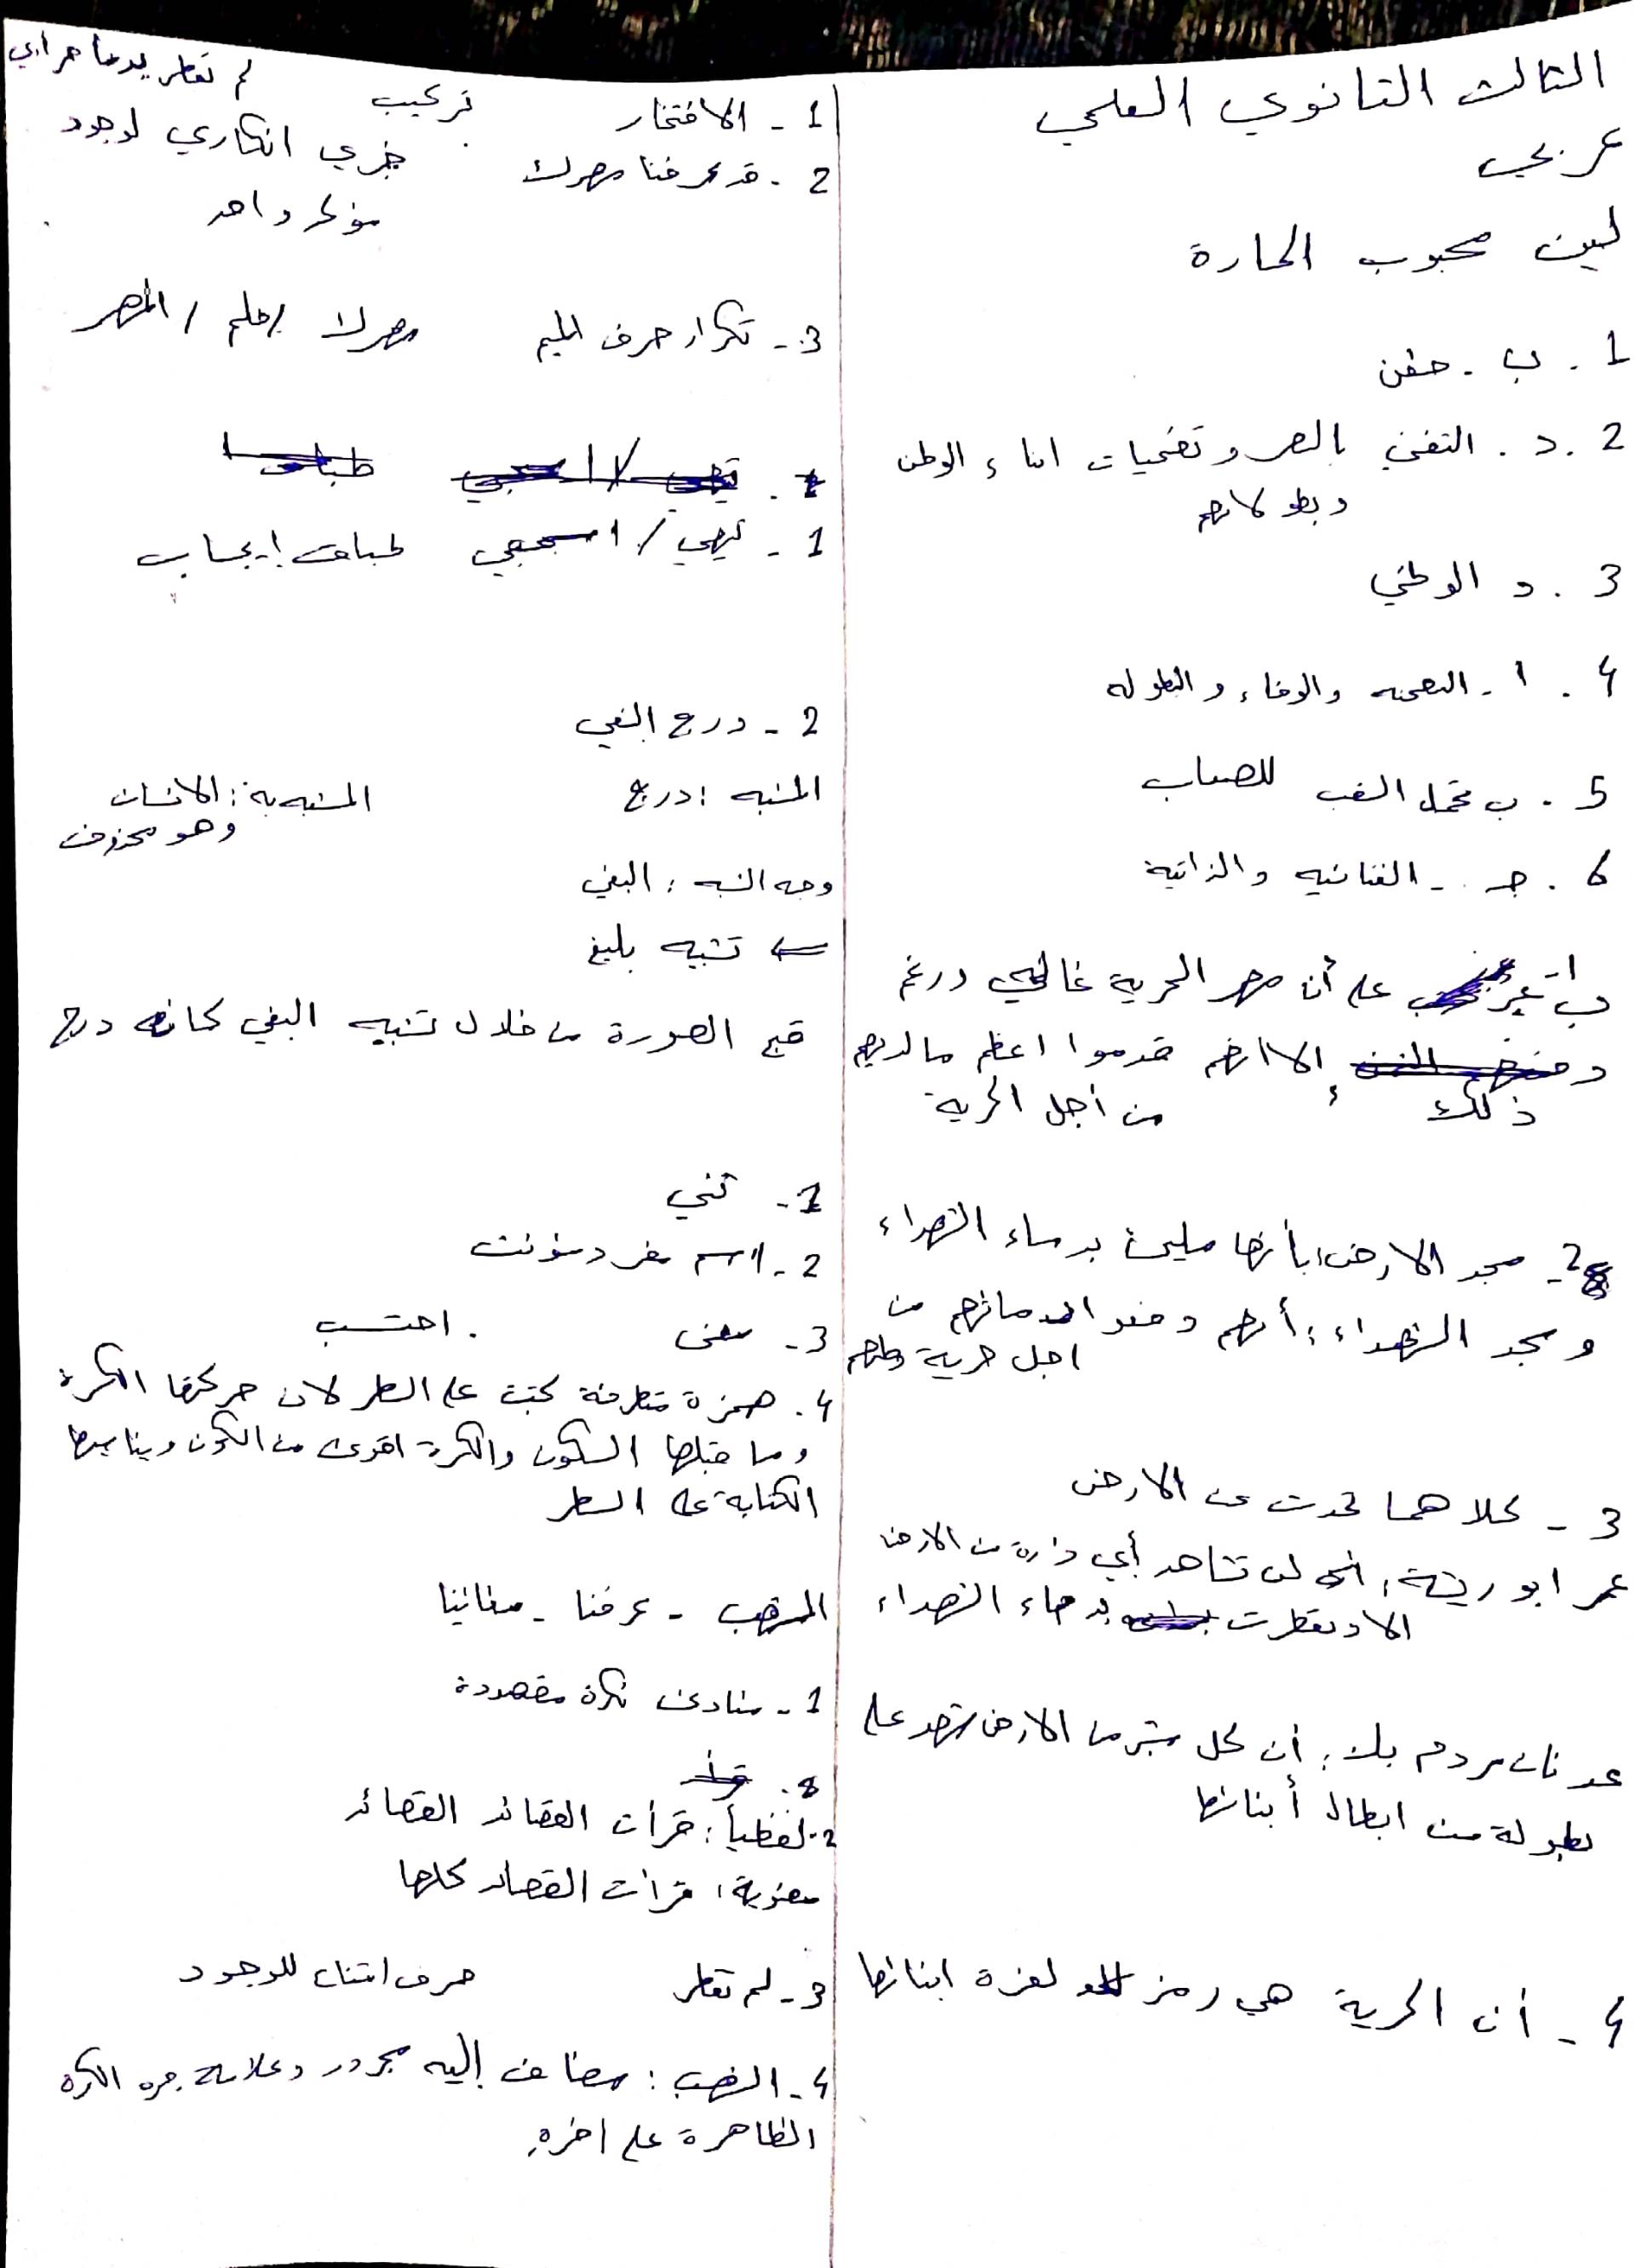 الثالث الثانوي العلمي
عربي
لين محبوب الحارة
1. ب. حقن
2. د. التغني بالصر و تضحيات ابناء الوطن
وبطولاتهم
3. د الوطني
4. ا - التضحيه والوفاء والبطوله
5. ب تحمل الشعب للصعاب
6. جـ - الغنائيه والذاتية
ب 1- عبر على أن مهر الحرية غالي ورغم
ذلك إلا انهم قدموا اعظم مالديهم
من أجل الحرية
2- مجد الارض: بأنها مليئة بدماء الشهداء
ومجد الشهداء: أنهم دفعوا دمائهم من
اجل حرية وطنهم
3 - كلاهما تحدث عن الارض
عمر ابو ريشة: لن تشاهد أي ذرة من الارض
الا وتعطرت بدماء الشهداء
عدنان مردم بك: أن كل شبر من الارض شهد على
بطولة من ابطال أبنائها
4 - أن الحرية هي رمز لعزة ابنائها
1 - الافتخار تركيب لم تعطر بدما حر ابي
2 - قد عرفنا مهرك خبري انكاري لوجود
مؤكد واحد
3- تكرار حرف الميم مهرك / المهر
1 - تيهي / اسحبي طباق إيجاب
2 - درج البغي
المشبه: درج المشبه به: الانسان
وهو محذوف
وجه الشبه: البغي
⇐ تشبيه بليغ
قبح الصورة من خلال تشبيه البغي كانه درج
2. اسم مفرد مؤنث
3 - معنى
4. همزة متطرفة كتبت على السطر لان حركتها الكسرة
وما قبلها السكون والكسرة اقوى من السكون ويناسبها
الكتابة على السطر
عرفنا - مغانينا
1- منادى نكرة مقصودة
2. لفظياً: قرأت القصائد القصائد
معنوية: قرأت القصائد كلها
3- لم تعطر حرف امتناع للوجود
4- الشهب: مضاف إليه مجرور وعلامة جره الكسرة
الظاهرة على اخره